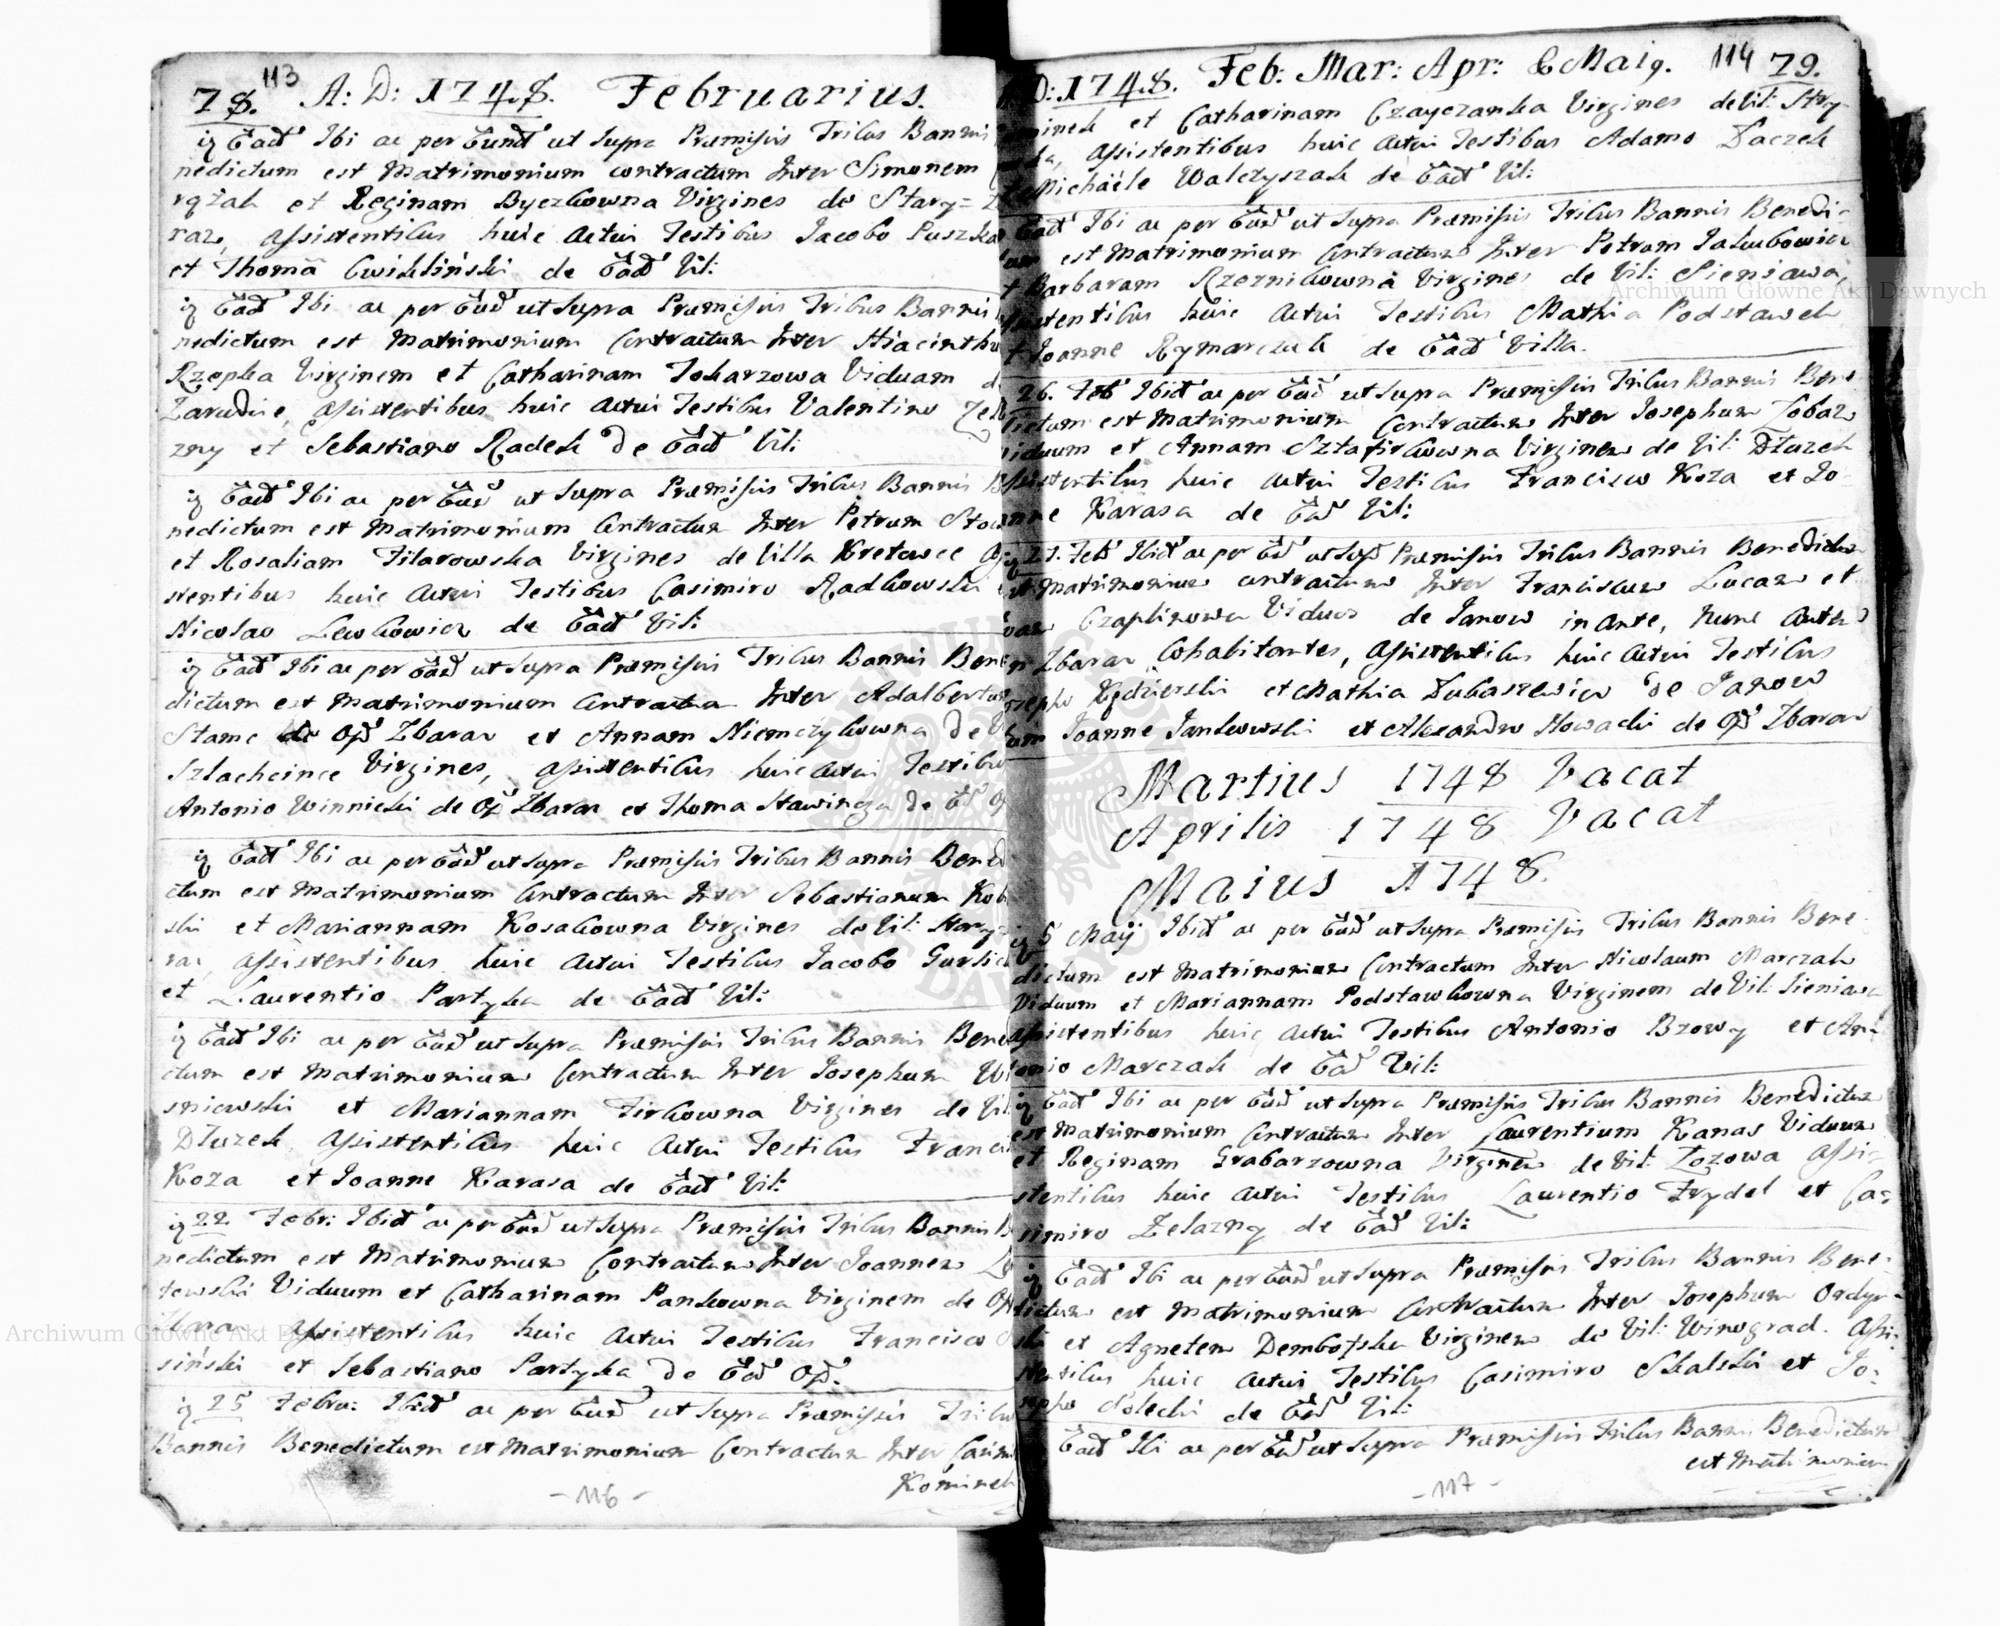 113
78. A: D: 1748. Februarius.
ig Ead Ibi ac per Eund ut supra Præmissis Tribus Bannis
nedictum est Matrimonium contractum Inter Simonem
rqtak et Reginam Byczkowna Virgines de Stary=
raz, Assistentibus huic Actui Testibus Iacobo Puszka
et Thoma Cwikliński de Ead Vil:
ig Ead Ibi ac per Eud ut Supra Præmissis Tribus Bannis
nedictum est Matrimonium Contractum Inter Hiacinthu
Rzepka Virginem et Catharinam Tokarzowa Viduam d
Zarudzie, Assistentibus huic Actui Testibus Valentino Zela
zny et Sebastiano Radek de Ead Vil:
ig Ead Ibi ac per Eud ut Supra Præmissis Tribus Bannis B
nedictum est Matrimonium Contractum Inter Petrum
et Rosaliam Filarowska Virgines de Villa Kretowce
stentibus huic Actui Testibus Casimiro Radkowski
Nicolao Lewkowicz de Ead Vil:
ig Ead Ibi ac per Eud ut Supra Præmissis Tribus Bannis Bene
dictum est Matrimonium Contractum Inter Adalbertum
Stame de Opd Zbaraz et Annam Niemczykowna de
Szlachcince Virgines, Assistentibus huic Actui Testibus
Antonio Winnicki de Opd Zbaraz et Thoma Stawinoga de Ed
ig Ead Ibi ac per Eud ut supra Præmissis Tribus Bannis Bened
ctum est Matrimonium Contractum Inter Sebastianum Kob
ski et Mariannam Kosakowna Virgines de Vil: Stary
raz, Assistentibus huic Actui Testibus Iacobo Gurlic
et Laurentio Partyka de Ead Vil:
ig Ead Ibi ac per Eud ut supra Præmissis Tribus Bannis Bene
ctum est Matrimonium Contractum Inter Iosephum Wi
sniewski et Mariannam Firkowna Virgines de Vil:
Dłuzek Assistentibus huic Actui Testibus Franci
Koza et Ioanne Karasa de Ead Vil:
ig 22 Febr: Ibid ac per Eud ut supra Præmissis Tribus Bannis B
nedictum est Matrimonium Contractum Inter Ioannem
tewski Viduum et Catharinam Pankowna Virginem de Opd
Zbaraz Assistentibus huic Actui Testibus Francisco
siński et Sebastiano Partyka de Ead Opd.
ig 25 Febru: Ibid ac per Eud ut Supra Præmissis Tribu
Bannis Benedictum est Matrimonium Contractum Inter Casim
Kominek
- 116 -
D: 1748. Feb: Mar: Apr: & Maig. 114 79.
minek et Catharinam Czayczanka Virgines de Vil: Stry
Assistentibus huic Actui Testibus Adamo Daczek
Michaële Walczyszak de Ead Vil:
Ead Ibi ac per Eud ut Supra Præmissis Tribus Bannis Benedi-
est Matrimonium Contractum Inter Petrum Iakubowicz
t Barbaram Rzeznikowna Virgines de Vil: Sieniawa,
stentibus huic Actui Testibus Mathia Podstawek
t Ioanne Rymarczuk de Ead Villa.
26. Feb Ibid ac per Eud ut Supra Præmissis Tribus Bannis Bene
dictum est Matrimonium Contractum Inter Iosephum Tobaz
iduum et Annam Sztafirkowna Virginem de Vil: Dłuzek
ssistentibus huic Actui Testibus Francisco Koza et Io-
nne Karasa de Ead Vil:
27. Feb Ibid ac per Ed ut Sup Præmissis Tribus Bannis Benedictum
est Matrimonium contractum Inter Franciscum Lucaz et
Czaplinowa Viduos de Ianow in ante, nunc autem
n Zbaraz Cohabitantes, Assistentibus huic Actui Testibus
oseph Kędzierski et Mathia Łukaszewicz de Ianow
Ioanne Iankowski et Alexandro Nowacki de Opd Zbaraz
Martius 1748 Vacat
Aprilis 1748 Vacat
Maius 1748.
ig 5 Maij Ibid ac per Eud ut Supra Præmissis Tribus Bannis Bene-
dictum est Matrimonium Contractum Inter Nicolaum Marczak
Viduum et Mariannam Podstawkowna Virginem de Vil: Sieniawa
Assistentibus huic Actui Testibus Antonio Bzowy et An-
onio Marczak de Ead Vil:
ig Ead Ibi ac per Eud ut supra Præmissis Tribus Bannis Benedictum
est Matrimonium Contractum Inter Laurentium Kanas Viduum
et Reginam Grabarzowna Virginem de Vil: Łozowa Assi-
stentibus huic Actui Testibus Laurentio Frydel et Ca=
simiro Zelazny de Ead Vil:
ig Ead Ibi ac per Eud ut supra Præmissis Tribus Bannis Bene-
dictum est Matrimonium Contractum Inter Iosephum Ordyn-
ski et Agnetem Dembowska Virginem de Vil: Winograd. Assi-
stentibus huic Actui Testibus Casimiro Skalski et Io=
sepho Solecki de Ead Vil:
Ead Ibi ac per Eud ut Supra Præmissis Tribus Bannis Benedictum
est Matrimonium
- 117 -
Archiwum Główne Akt Dawnych
Archiwum Główne Akt Dawnych